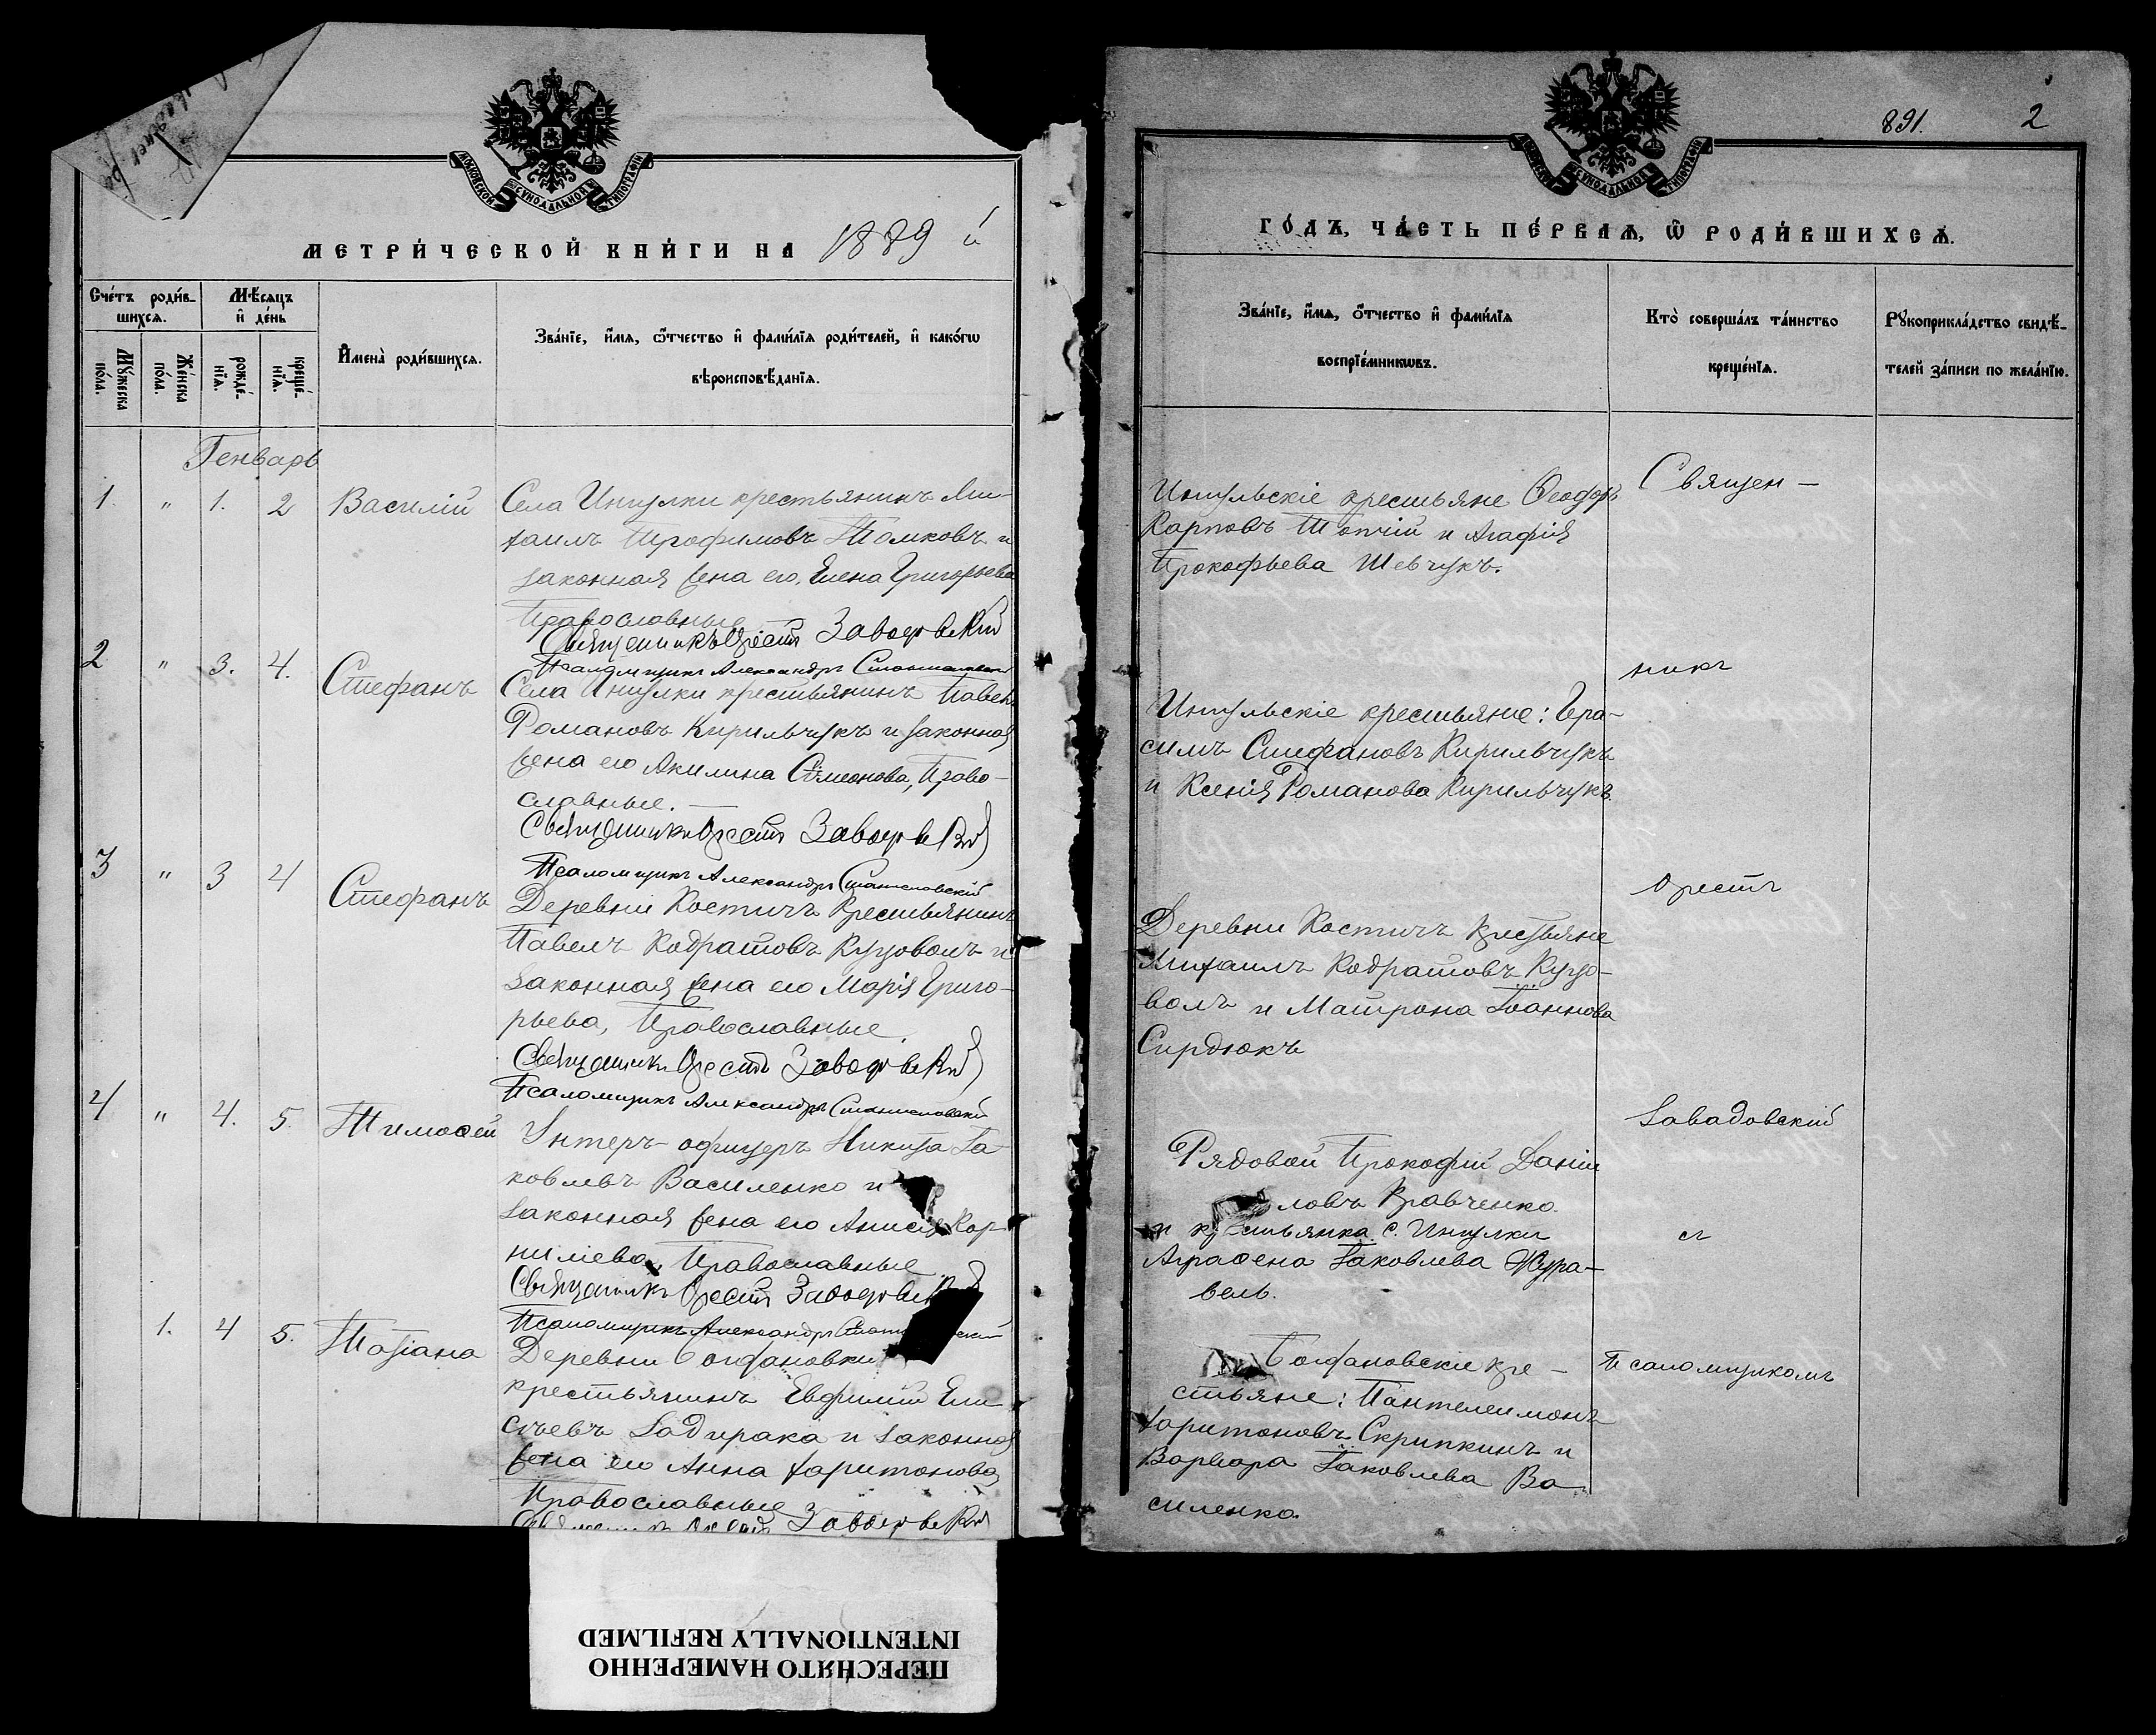 МОСКОВСКОЙ СѴНОДАЛЬНОЙ ТИПОГРАФІИ
МЕТРИ́ЧЕСКОЙ КНИ́ГИ НА 1889 й
Сче́тъ роди́в-
шихсѧ.
Мѣ́сѧцъ
и҆ де́нь
Мꙋ́жеска
по́ла.
Же́нска
по́ла.
рожде́-
нїѧ.
креще́-
нїѧ.
И҆мена̀ роди́вшихсѧ.
Зва́нїе, и҆́мѧ, ѻ҆́тчество и҆ фами́лїѧ роди́телей, и҆ како́гѡ
вѣроисповѣ́данїѧ.
Генварь
1. " 1. 2 Василій Села Ингулки крестьянинъ Ми-
хаилъ Трофимовъ Томковъ и
законная жена его, Елена Григорьева
Православные
Священникъ Орестъ Завадовскій
Псаломщикъ Александръ
2 " 3. 4. Стефанъ Села Ингулки крестьянинъ Павелъ
Романовъ Кирильчукъ и законная
жена его Акилина Симеонова, Право-
славные.
Священникъ Орестъ Завадовскій
Псаломщикъ Александръ Станиславскій
3 " 3 4 Стефанъ Деревни Костичъ Крестьянинъ
Павелъ Кодратовъ Куцоволъ и
законная жена его Марія Григо-
рьева, Православные.
Священникъ Орестъ Завадовскій
Псаломщикъ Александръ Станиславскій
4 " 4. 5. Тимоѳей Унтеръ-офицеръ Никита Іа-
ковлевъ Василенко и
законная жена его Анисія Кор-
ниліева, Православные
Священникъ Орестъ
Псаломщикъ Александръ
1. 4 5. Татіана Деревни Богдановки
крестьянинъ Евфимій Ели-
сѣевъ Задирака и законная
жена его Анна Харитонова
Православные
Священникъ Орестъ Завадовскій
891. 2
МОСКОВСКОЙ СѴНОДАЛЬНОЙ ТИПОГРАФІИ
ГО́ДЪ, ЧА́СТЬ ПЕ́РВАѦ, Ѽ РОДИ́ВШИХСѦ.
Зва́нїе, и҆́мѧ, ѻ҆́тчество и҆ фами́лїѧ
воспрїе́мникѡвъ.
Кто̀ соверша́лъ та́инство
креще́нїѧ.
Рꙋкоприкла́дство свидѣ́-
телей за́писи по жела́нїю.
Ингульскіе крестьяне Ѳеодоръ
Карповъ Топчій и Агафія
Прокофьева Шевчукъ.
Священ-
Ингульскіе крестьяне: Гера-
симъ Стефановъ Кирильчукъ
и Ксенія Романова Кирильчукъ.
никъ
Деревни Костичъ крестьяне
Михаилъ Кодратовъ Куцо-
волъ и Матрона Іоаннова
Сирдюкъ
Орестъ
Рядовой Прокофій Даніи
ловъ Кравченко
и крестьянка с. Ингулки
Аграфена Іаковлева Жура-
вель.
Завадовскій
съ
Богдановскіе кре-
стьяне: Пантелеимонъ
Харитоновъ Скрипкинъ и
Варвара Іаковлева Ва
силенко.
Псаломщикомъ
ПЕРЕСНЯТО НАМЕРЕННО
INTENTIONALLY REFILMED